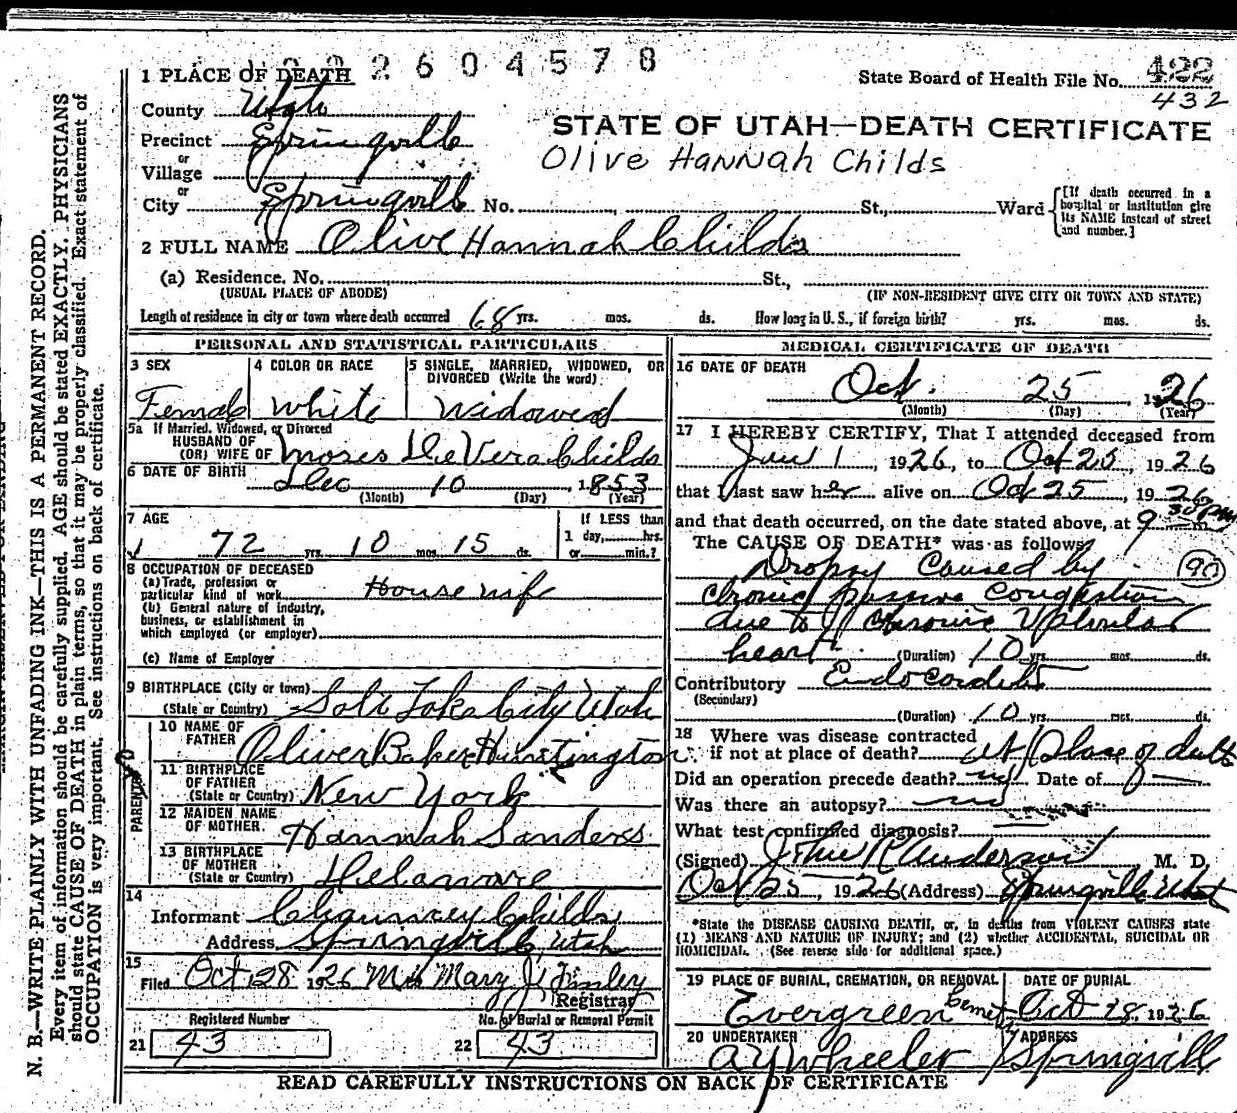 2604578
1 PLACE OF DEATH
State Board of Health File No. 422
432
County Utah
STATE OF UTAH—DEATH CERTIFICATE
Precinct Springville
or
Olive Hannah Childs
Village
or
City Springville No. , St., Ward
[If death occurred in a hospital or institution give its NAME instead of street and number.]
2 FULL NAME Olive Hannah Childs
(a) Residence. No. St.,
(USUAL PLACE OF ABODE) (IF NON-RESIDENT GIVE CITY OR TOWN AND STATE)
Length of residence in city or town where death occurred 68 yrs. mos. ds. How long in U. S., if foreign birth? yrs. mos. ds.
PERSONAL AND STATISTICAL PARTICULARS
3 SEX
Female
4 COLOR OR RACE
White
5 SINGLE, MARRIED, WIDOWED, OR
DIVORCED (Write the word)
Widowed
5a If Married, Widowed, or Divorced
HUSBAND OF
(OR) WIFE OF Moses DeVera Childs
6 DATE OF BIRTH Dec 10, 1853
(Month) (Day) (Year)
7 AGE
72 yrs. 10 mos. 15 ds.
If LESS than
1 day, hrs.
or min.?
8 OCCUPATION OF DECEASED
(a) Trade, profession or
particular kind of work Housewife
(b) General nature of industry,
business, or establishment in
which employed (or employer)
(c) Name of Employer
9 BIRTHPLACE (City or town)
(State or Country) Salt Lake City Utah
PARENTS
10 NAME OF
FATHER Oliver Baker Huntington
11 BIRTHPLACE
OF FATHER
(State or Country) New York
12 MAIDEN NAME
OF MOTHER Hannah Sanders
13 BIRTHPLACE
OF MOTHER
(State or Country) Delaware
14
Informant Childs
Address Springville, Utah
15
Filed Oct 28 1926 Mrs Mary J. Finley
Registrar
Registered Number
21 43
No. of Burial or Removal Permit
22 43
MEDICAL CERTIFICATE OF DEATH
16 DATE OF DEATH
Oct. 25, 1926
(Month) (Day) (Year)
17 I HEREBY CERTIFY, That I attended deceased from
1, 1926, to Oct 25, 1926
that I last saw her alive on Oct 25, 1926
and that death occurred, on the date stated above, at 9 30 PM m.
The CAUSE OF DEATH* was as follows:
Dropsy Caused by 90
chronic passive Congestion
due to chronic Valvular
heart (Duration) 10 yrs. mos. ds.
Contributory Endocarditis
(Secondary)
(Duration) 10 yrs. mos. ds.
18 Where was disease contracted
if not at place of death? at place of death
Did an operation precede death? no Date of —
Was there an autopsy? no
What test confirmed diagnosis?
(Signed) John R Anderson, M. D.
Oct 25, 1926 (Address) Springville Utah
*State the DISEASE CAUSING DEATH, or, in deaths from VIOLENT CAUSES state
(1) MEANS AND NATURE OF INJURY; and (2) whether ACCIDENTAL, SUICIDAL OR
HOMICIDAL. (See reverse side for additional space.)
19 PLACE OF BURIAL, CREMATION, OR REMOVAL
Evergreen Cemetery
DATE OF BURIAL
Oct 28, 1926
20 UNDERTAKER
A Y Wheeler
ADDRESS
Springville
READ CAREFULLY INSTRUCTIONS ON BACK OF CERTIFICATE
N. B.—WRITE PLAINLY WITH UNFADING INK—THIS IS A PERMANENT RECORD.
Every item of information should be carefully supplied. AGE should be stated EXACTLY. PHYSICIANS
should state CAUSE OF DEATH in plain terms, so that it may be properly classified. Exact statement of
OCCUPATION is very important. See instructions on back of certificate.